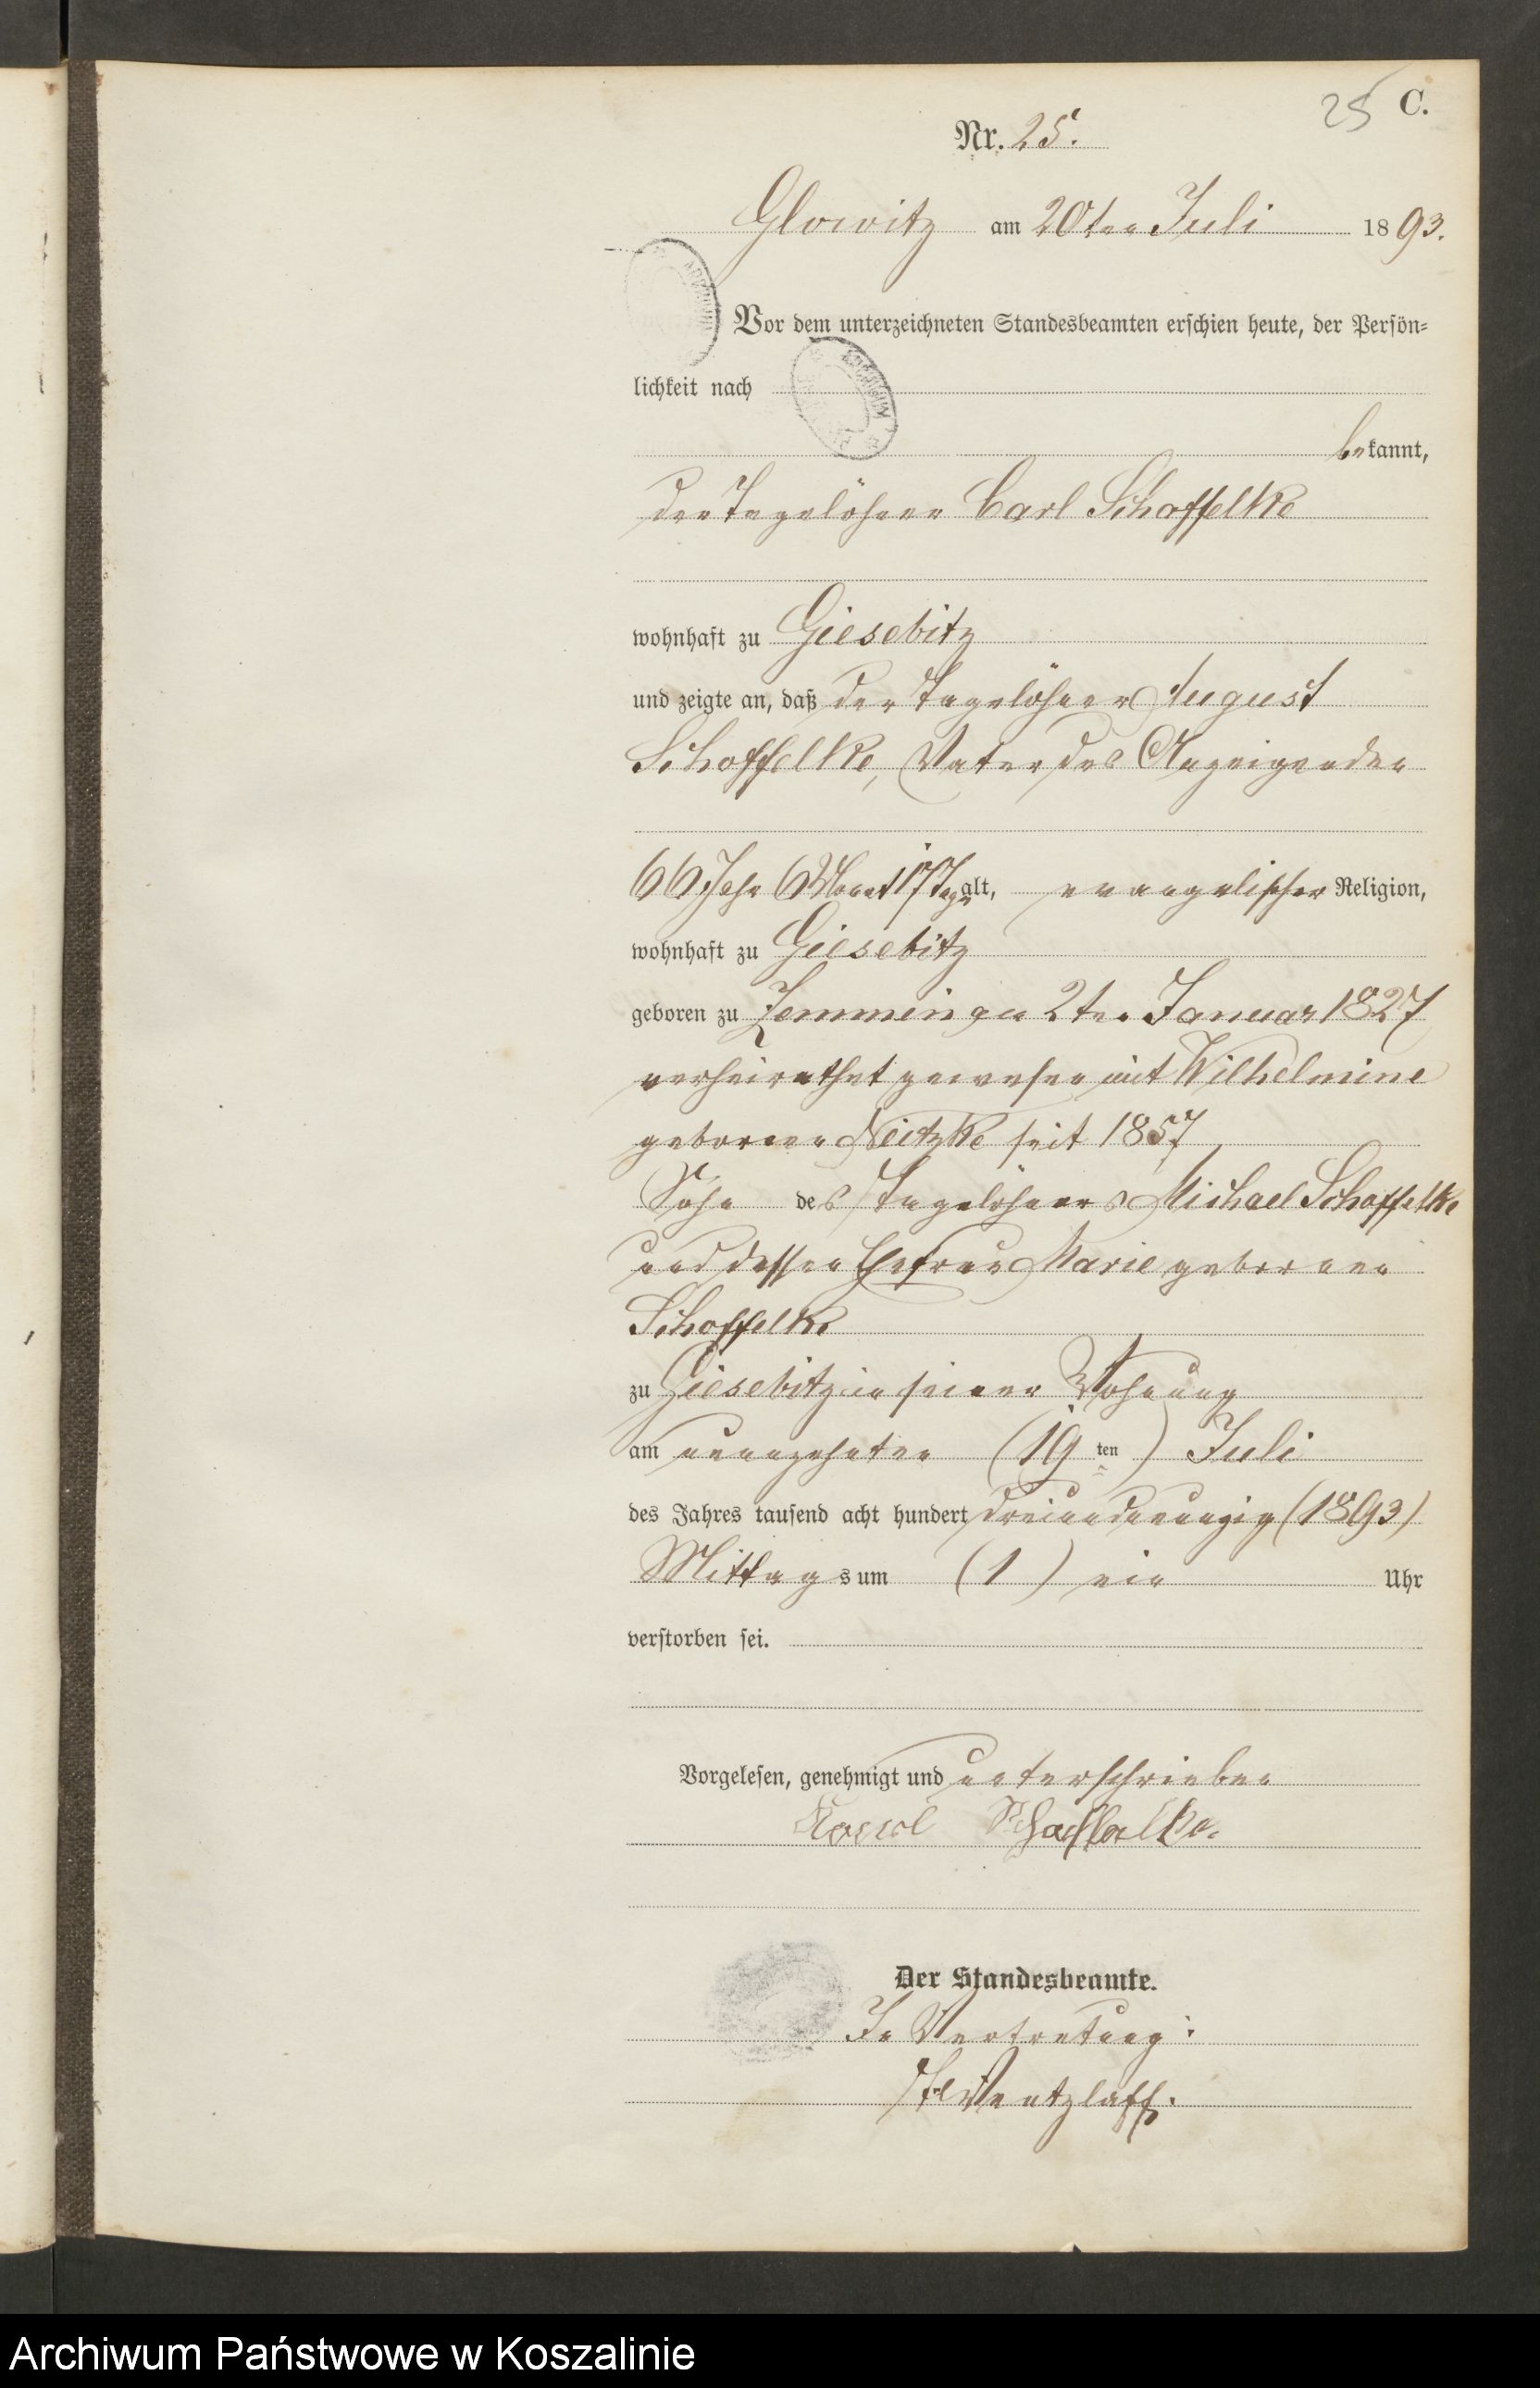 25 C.
Nr. 25.
Glowitz am 20ten Juli 1893.
Vor dem unterzeichneten Standesbeamten erschien heute, der Persön-
lichkeit nach
bekannt,
der Tagelöhner Carl Schoffelke
wohnhaft zu Giesebitz
und zeigte an, daß der Tagelöhner August
Schoffelke, Vater des Anzeigenden
66 Jahr 6 Monat 17 Tage alt, evangelischer Religion,
wohnhaft zu Giesebitz
geboren zu Zemmin am 2ten Januar 1827
verheirathet gewesen mit Wilhelmine
geborenen Neitzke seit 1857
Sohn des Tagelöhners Michael Schoffelke
und dessen Ehefrau Marie geborenen
Schoffelke
zu Giesebitz in seiner Wohnung
am neunzehnten (19 ten) Juli
des Jahres tausend acht hundert dreiundneunzig (1893)
Mittags um (1) ein Uhr
verstorben sei.
Vorgelesen, genehmigt und unterschrieben
Der Standesbeamte.
In Vertretung:
Wentzlaff.
Archiwum Państwowe w Koszalinie